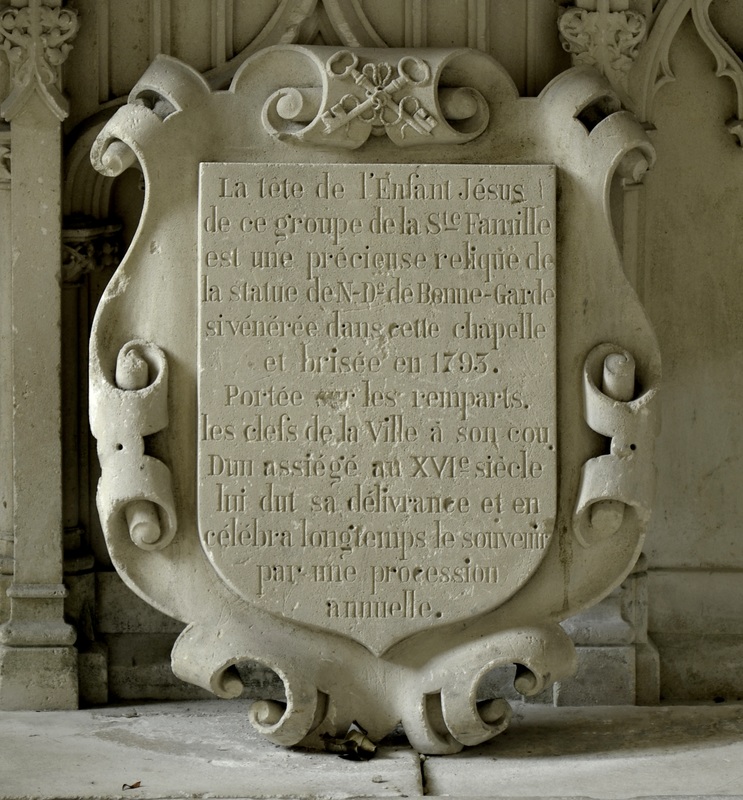 La tête de l'Enfant Jésus
de ce groupe de la Ste Famille
est une précieuse relique de
la statue de N-De de Bonne-Garde
si vénérée dans cette chapelle
et brisée en 1793.
Portée sur les remparts.
les clefs de la Ville à son cou,
Dun assiégé au XVIe siècle
lui dut sa délivrance et en
célébra longtemps le souvenir
par une procession
annuelle.